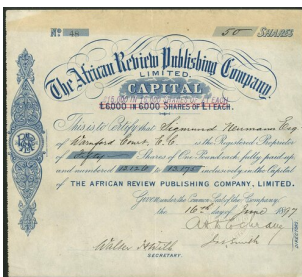 Nº 48
50 SHARES
The African Review Publishing Company,
LIMITED.
CAPITAL
£6000 IN 6000 SHARES OF £1 EACH.
This is to Certify that Sigmund Neumann Esq
of Warnford Court, E.C. is the Registered Proprietor
of Fifty Shares of One Pound each fully paid up
and numbered to inclusively in the Capital
of THE AFRICAN REVIEW PUBLISHING COMPANY, LIMITED.
Given under the Common Seal of the Company
the 16th day of June 1897
SECRETARY.